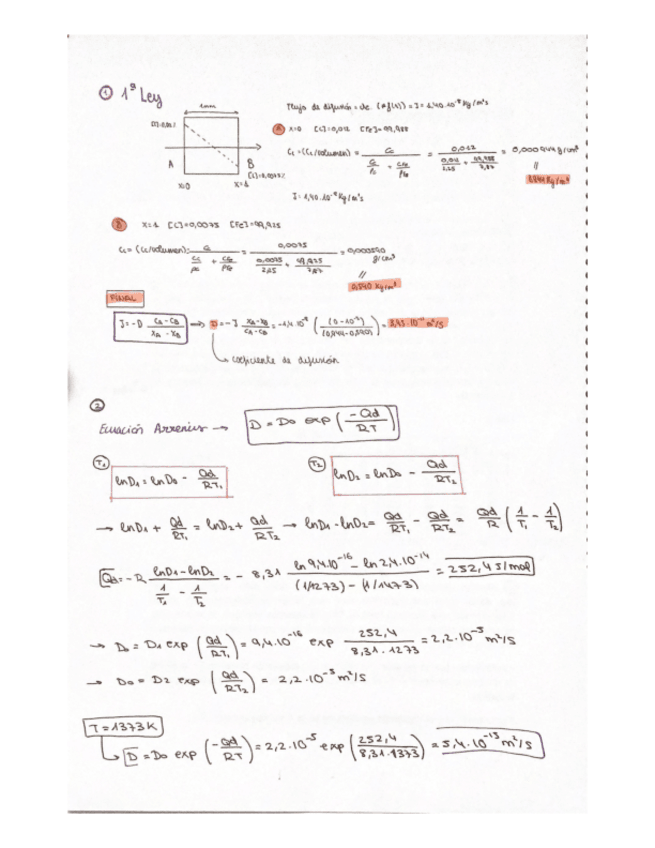 ① 1ª Ley
1mm
Flujo de difusión = cte. (≠f(t)) = J = 1,40·10⁻⁸ Kg/m²s
A x=0 [C]=0,012 [Fe]=99,988
A B
x=0 x=1
Cc = (Cc/volumen) = Cc / (Cc/ρc + CFe/ρFe) = 0,012 / (0,012/2,25 + 99,988/7,87) = 0,000944 g/cm³
0,944 Kg/m³
J = 1,40·10⁻⁸ Kg/m²s
B x=1 [C]=0,0075 [Fe]=99,925
Cc = (Cc/volumen) = Cc / (Cc/ρc + CFe/ρFe) = 0,0075 / (0,0075/2,25 + 99,925/7,87) = 0,000590 g/cm³
FINAL
J = -D (CA - CB)/(xA - xB) → D = -J (xA - xB)/(CA - CB) = -1,4·10⁻⁸
coeficiente de difusión
②
Ecuación Arrenius → D = D₀ exp (-Qd/RT)
T₁ lnD₁ = lnD₀ - Qd/RT₁ T₂ lnD₂ = lnD₀ - Qd/RT₂
→ lnD₁ + Qd/RT₁ = lnD₂ + Qd/RT₂ → lnD₁ - lnD₂ = Qd/RT₁ - Qd/RT₂ = Qd/R (1/T₁ - 1/T₂)
Qd = -R (lnD₁ - lnD₂)/(1/T₁ - 1/T₂) = - 8,31 (ln 9,4·10⁻¹⁶ - ln 2,4·10⁻¹⁴)/((1/1273) - (1/1473)) = 252,4 J/mol
→ D₀ = D₁ exp (Qd/RT₁) = 9,4·10⁻¹⁶ exp 252,4/(8,31·1273) = 2,2·10⁻⁵ m²/s
→ D₀ = D₂ exp (Qd/RT₂) = 2,2·10⁻⁵ m²/s
T = 1373K
D = D₀ exp (-Qd/RT) = 2,2·10⁻⁵ exp (252,4/(8,31·1373)) = 5,4·10⁻¹⁵ m²/s